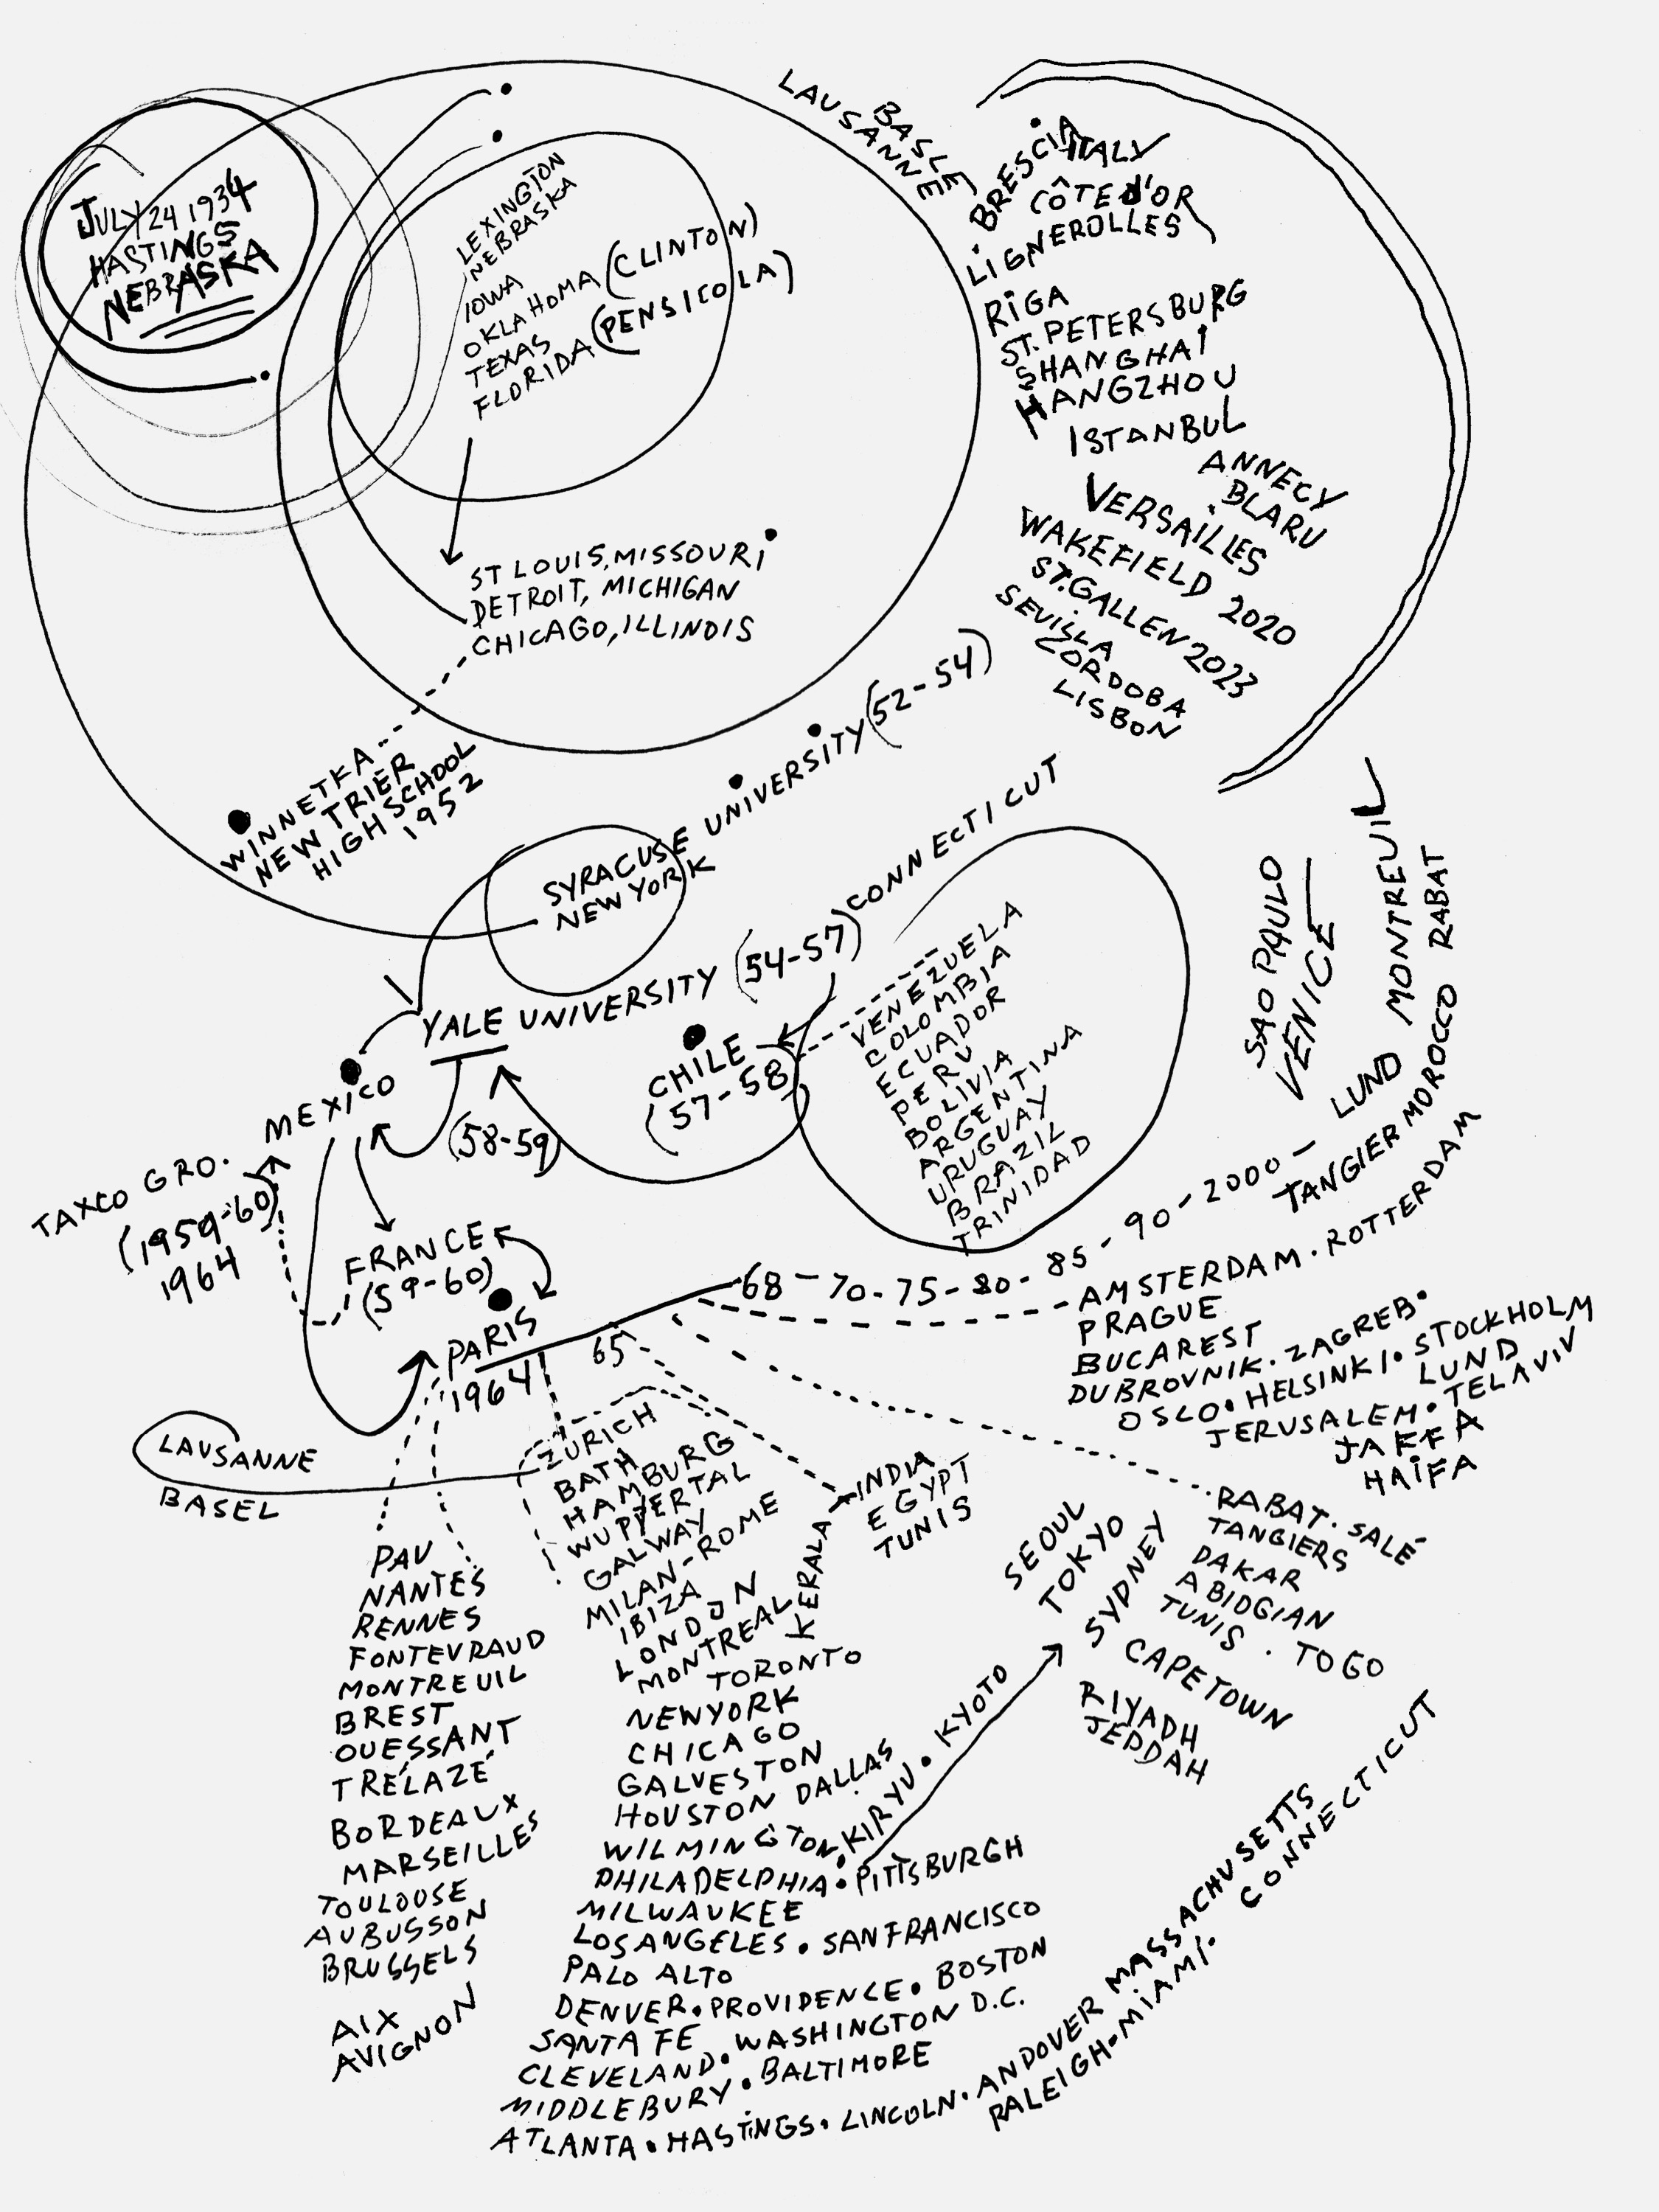 JULY 24 1934
HASTINGS
NEBRASKA
LEXINGTON
NEBRASKA
IOWA
OKLAHOMA (CLINTON)
TEXAS
FLORIDA (PENSICOLA)
ST LOUIS, MISSOURI
DETROIT, MICHIGAN
CHICAGO, ILLINOIS
WINNETKA
NEW TRIER
HIGH SCHOOL
1952
BASLE
LAUSANNE
BRESCIA
ITALY
CÔTE D'OR
LIGNEROLLES
RIGA
ST. PETERSBURG
SHANGHAI
HANGZHOU
ISTANBUL
ANNECY
BLARU
VERSAILLES
WAKEFIELD 2020
ST. GALLEN 2023
SEVILLA
CORDOBA
LISBON
SYRACUSE UNIVERSITY (52-54)
NEW YORK
YALE UNIVERSITY (54-57) CONNECTICUT
CHILE
(57-58)
VENEZUELA
COLOMBIA
ECUADOR
PERU
BOLIVIA
ARGENTINA
URUGUAY
BRAZIL
TRINIDAD
MEXICO
(58-59)
TAXCO GRO.
(1959-60)
1964
FRANCE
(59-60)
PARIS
1964
65
68-70-75-80-85-90-2000-LUND
SAO PAULO
VENICE
MONTREUIL
RABAT
TANGIER MOROCCO
AMSTERDAM. ROTTERDAM
PRAGUE
BUCAREST
DUBROVNIK. ZAGREB.
OSLO. HELSINKI. STOCKHOLM
LUND
JERUSALEM. TELAVIV
JAFFA
HAIFA
LAUSANNE
BASEL
PAU
NANTES
RENNES
FONTEVRAUD
MONTREUIL
BREST
OUESSANT
TRÉLAZÉ
BORDEAUX
MARSEILLES
TOULOUSE
AUBUSSON
BRUSSELS
AIX
AVIGNON
ZURICH
BATH
HAMBURG
WUPPERTAL
GALWAY
MILAN-ROME
IBIZA
LONDON
MONTREAL
TORONTO
NEWYORK
CHICAGO
GALVESTON
HOUSTON DALLAS
WILMINGTON.
PHILADELPHIA. PITTSBURGH
MILWAUKEE
LOSANGELES. SANFRANCISCO
PALO ALTO
DENVER. PROVIDENCE. BOSTON
SANTA FE
CLEVELAND. WASHINGTON D.C.
MIDDLEBURY. BALTIMORE
ATLANTA. HASTINGS. LINCOLN. ANDOVER MASSACHUSETTS
RALEIGH. MIAMI. CONNECTICUT
INDIA
EGYPT
TUNIS
KERALA
KIRYU. KYOTO
SEOUL
TOKYO
SYDNEY
RABAT. SALÉ
TANGIERS
DAKAR
ABIDGIAN
TUNIS. TOGO
CAPETOWN
RIYADH
JEDDAH